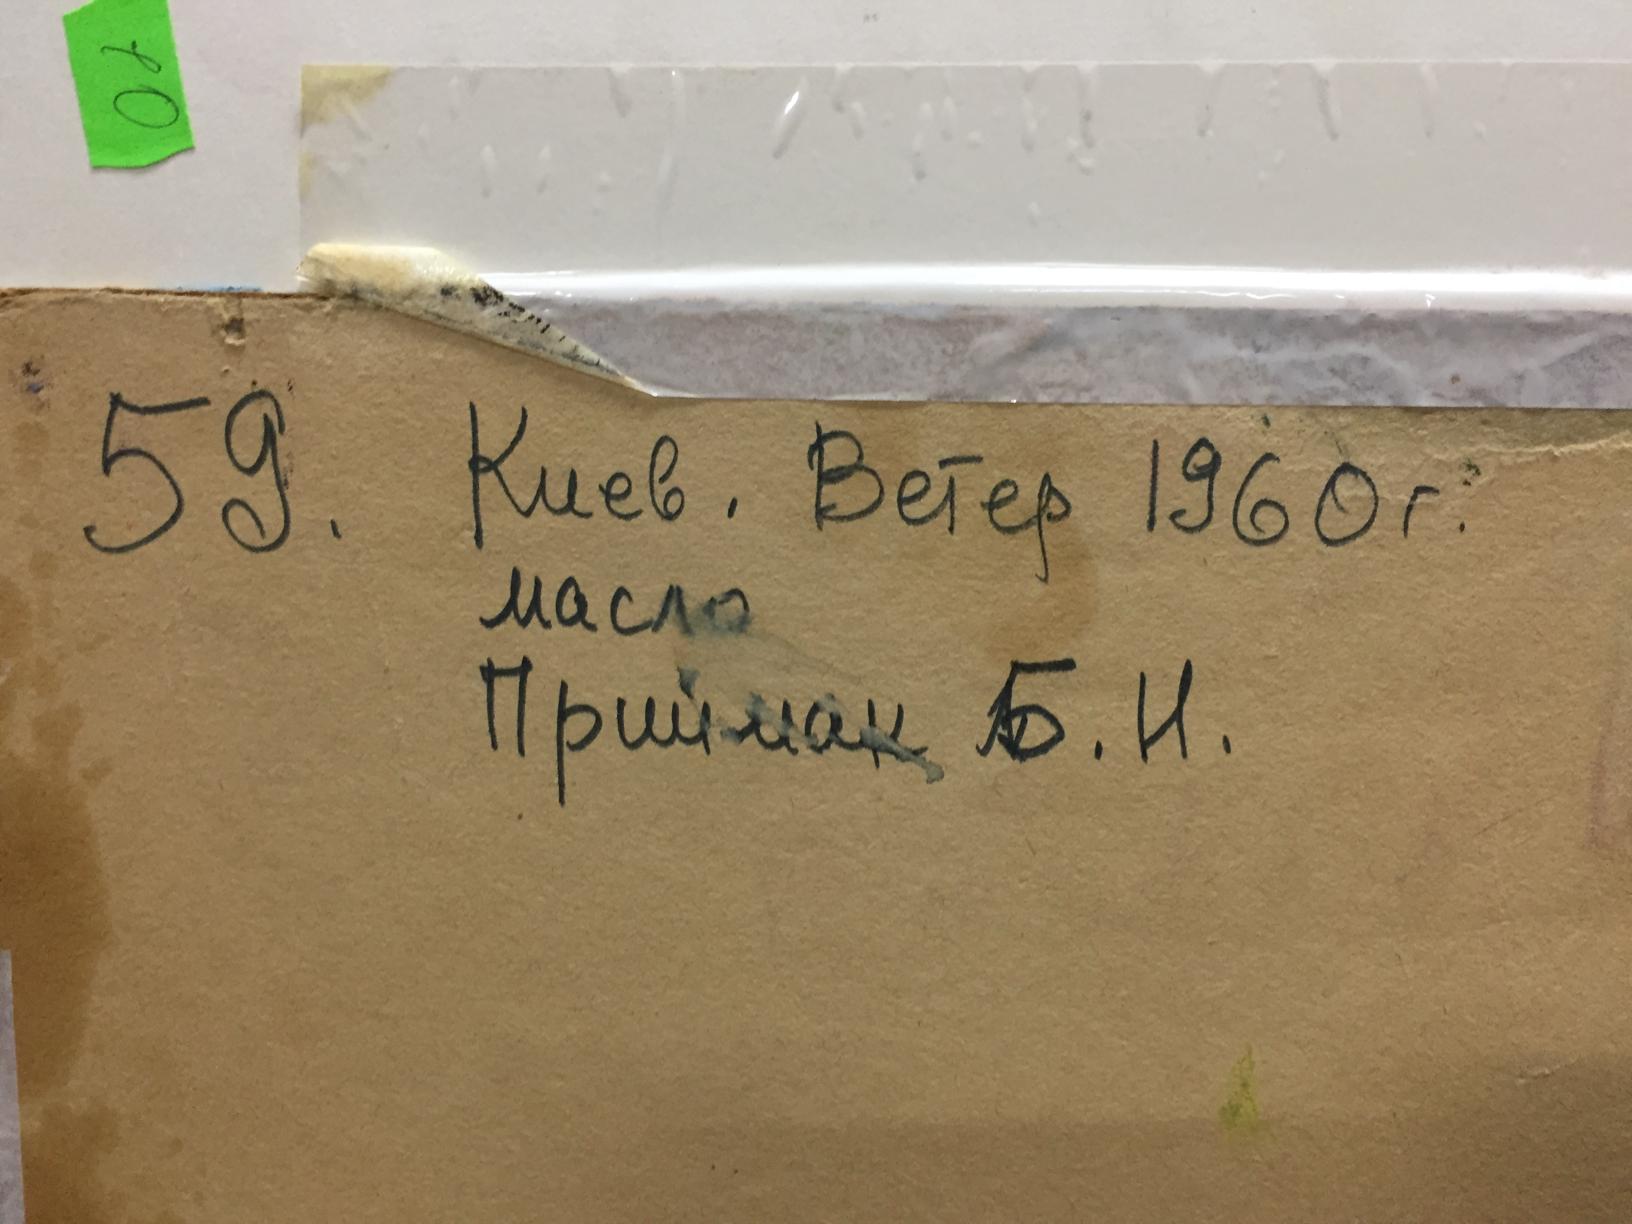 59. Киев. Ветер 1960 г.
масло
Приймак Б. И.